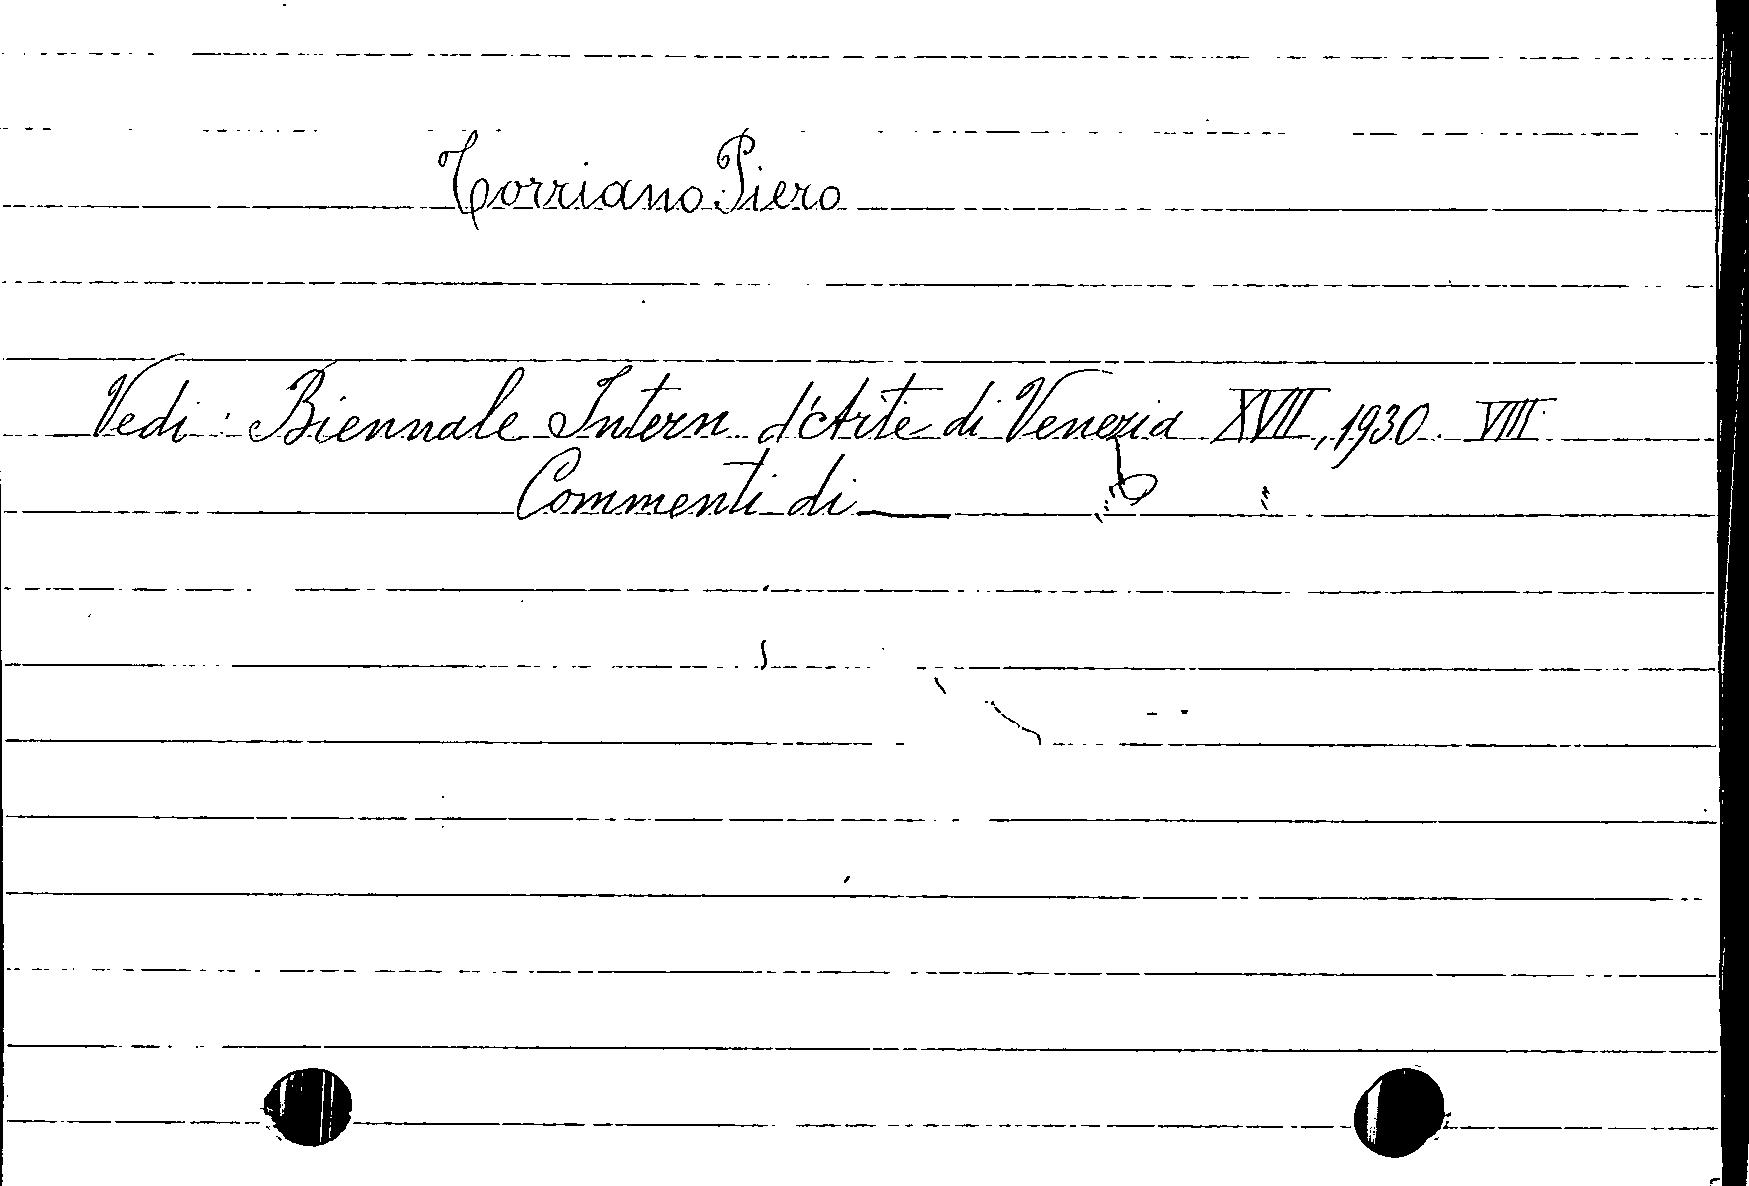 Torriano Piero
Vedi: Biennale Intern. d'Arte di Venezia XVII, 1930. VIII.
Commenti di ___